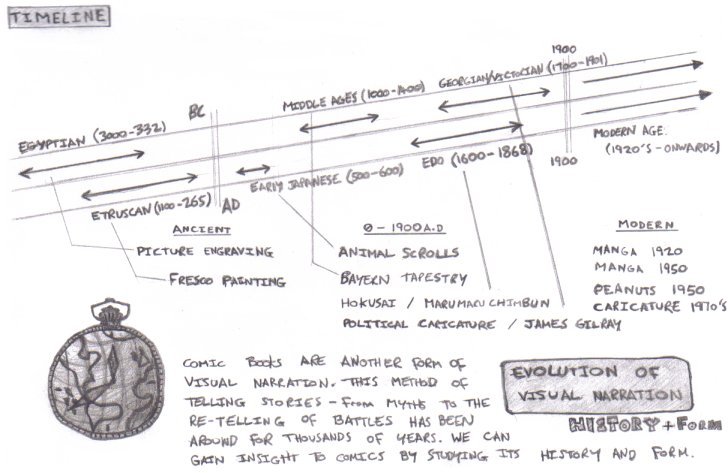 TIMELINE
1900
GEORGIAN/VICTORIAN (1700-1901)
MIDDLE AGES (1000-1400)
BC
EGYPTIAN (3000-332)
MODERN AGE.
(1920'S - ONWARDS)
1900
EDO (1600-1868)
EARLY JAPANESE. (500-600)
ETRUSCAN (1100-265)
AD
ANCIENT
PICTURE ENGRAVING
FRESCO PAINTING
0 - 1900 A.D
ANIMAL SCROLLS
BAYERN TAPESTRY
HOKUSAI / MARUMARU CHIMBUN
POLITICAL CARICATURE / JAMES GILRAY
MODERN
MANGA 1920
MANGA 1950
PEANUTS 1950
CARICATURE 1970'S
COMIC BOOKS ARE ANOTHER FORM OF
VISUAL NARRATION. THIS METHOD OF
TELLING STORIES - FROM MYTHS TO THE
RE-TELLING OF BATTLES HAS BEEN
AROUND FOR THOUSANDS OF YEARS. WE CAN
GAIN INSIGHT TO COMICS BY STUDYING ITS HISTORY AND FORM.
EVOLUTION OF
VISUAL NARRATION
HISTORY + FORM